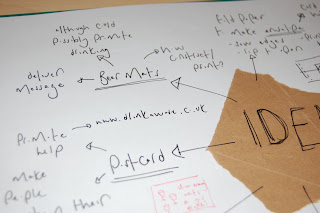 although Could
Possibly Promote
drinking
deliver
Message
Beer Mats
how
Contract/
print?
Fold Paper
Make
edges
IDE
www.drinkaware.co.uk
Promote
help
Postcard
Make
People
their